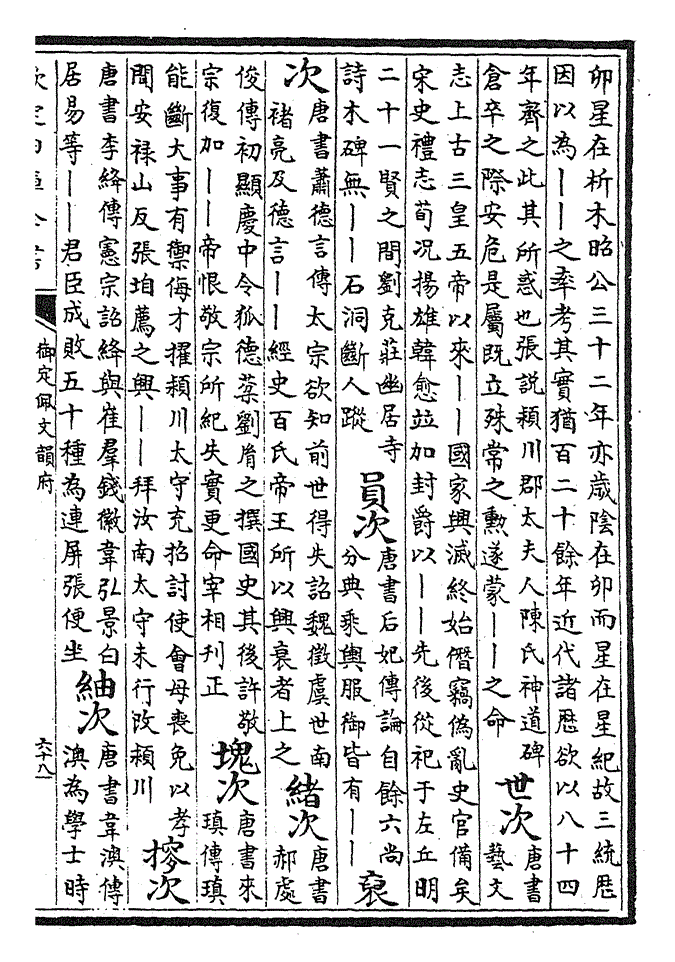 卯星在析木昭公三十二年亦歲陰在卯而星在星紀故三統厯
因以為——之率考其實猶百二十餘年近代諸厯欲以八十四
年齊之此其所惑也張説潁川郡太夫人陳氏神道碑
倉卒之際安危是屬既立殊常之勲遂蒙——之命
世次唐書藝文
志上古三皇五帝以來——國家興滅終始僭竊偽亂史官備矣
宋史禮志荀況揚雄韓愈並加封爵以——先後從祀于左丘明
二十一賢之間劉克莊幽居寺
詩木碑無——石洞斷人蹤
員次唐書后妃傳論自餘六尚
分典乘輿服御皆有——
裒
次唐書蕭德言傳太宗欲知前世得失詔魏徵虞世南
褚亮及德言——經史百氏帝王所以興衰者上之
緒次唐書郝處
俊傳初顯慶中令狐德棻劉胤之撰國史其後許敬
宗復加——帝恨敬宗所紀失實更命宰相刋正
塊次唐書來瑱傳瑱
能斷大事有禦侮才擢潁川太守充招討使會母喪免以孝
聞安禄山反張垍薦之興——拜汝南太守未行改潁川
摎次
唐書李絳傳憲宗詔絳與崔羣錢徽韋弘景白
居易等——君臣成敗五十種為連屏張便坐
紬次唐書韋澳傳
澳為學士時
御定佩文韻府
六十八